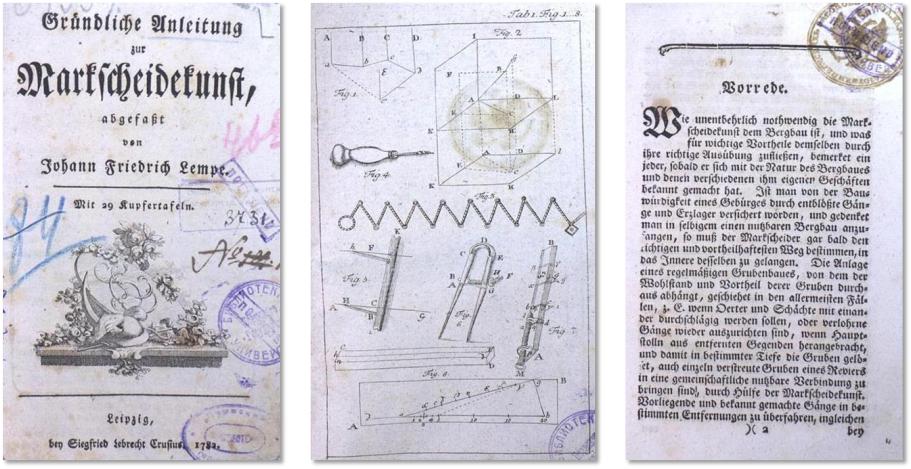 Gründliche Anleitung
zur
Markscheidekunst,
abgefaßt
von
Johann Friedrich Lempe.
Mit 29 Kupfertafeln.
3731
Leipzig,
bey Siegfried Lebrecht Crusius, 1782.
Tab 1. Fig. 1...8.
Fig. 2
Fig. 1
Fig. 4
Fig. 5
Fig. 3
Fig. 6
Fig. 7
Fig. 8
Vorrede.
Wie unentbehrlich nothwendig die Mark-
scheidekunst dem Bergbau ist, und was
für wichtige Vortheile demselben durch
ihre richtige Ausübung zufließen, bemerket ein
jeder, sobald er sich mit der Natur des Bergbaues
und denen verschiedenen ihm eigenen Geschäften
bekannt gemacht hat. Ist man von der Bau-
würdigkeit eines Gebürges durch entblößte Gän-
ge und Erzlager versichert worden, und gedenket
man in selbigem einen nutzbaren Bergbau anzu-
fangen, so muß der Markscheider gar bald den
richtigen und vortheilhaftesten Weg bestimmen, in
das Innere desselben zu gelangen. Die Anlage
eines regelmäßigen Grubenbaues, von dem der
Wohlstand und Vortheil derer Gruben durch-
aus abhängt, geschiehet in den allermeisten Fäl-
len, z. E. wenn Oerter und Schächte mit einan-
der durchschlägig werden sollen, oder verlohrne
Gänge wieder auszurichten sind, wenn Haupt-
stolln aus entfernten Gegenden herangebracht,
und damit in bestimmter Tiefe die Gruben gelö-
set, auch einzeln verstreute Gruben eines Reviers
in eine gemeinschaftliche nutzbare Verbindung zu
bringen sind, durch Hülfe der Markscheidekunst.
Vorliegende und bekannt gemachte Gänge in be-
stimmten Entfernungen zu überfahren, ingleichen
)( 2 bey